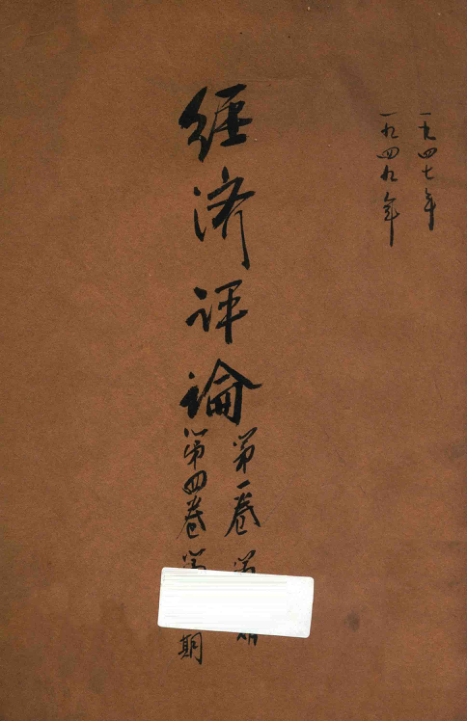 一九四七年
一九四九年
經济评論
第一卷第期
第四卷第期